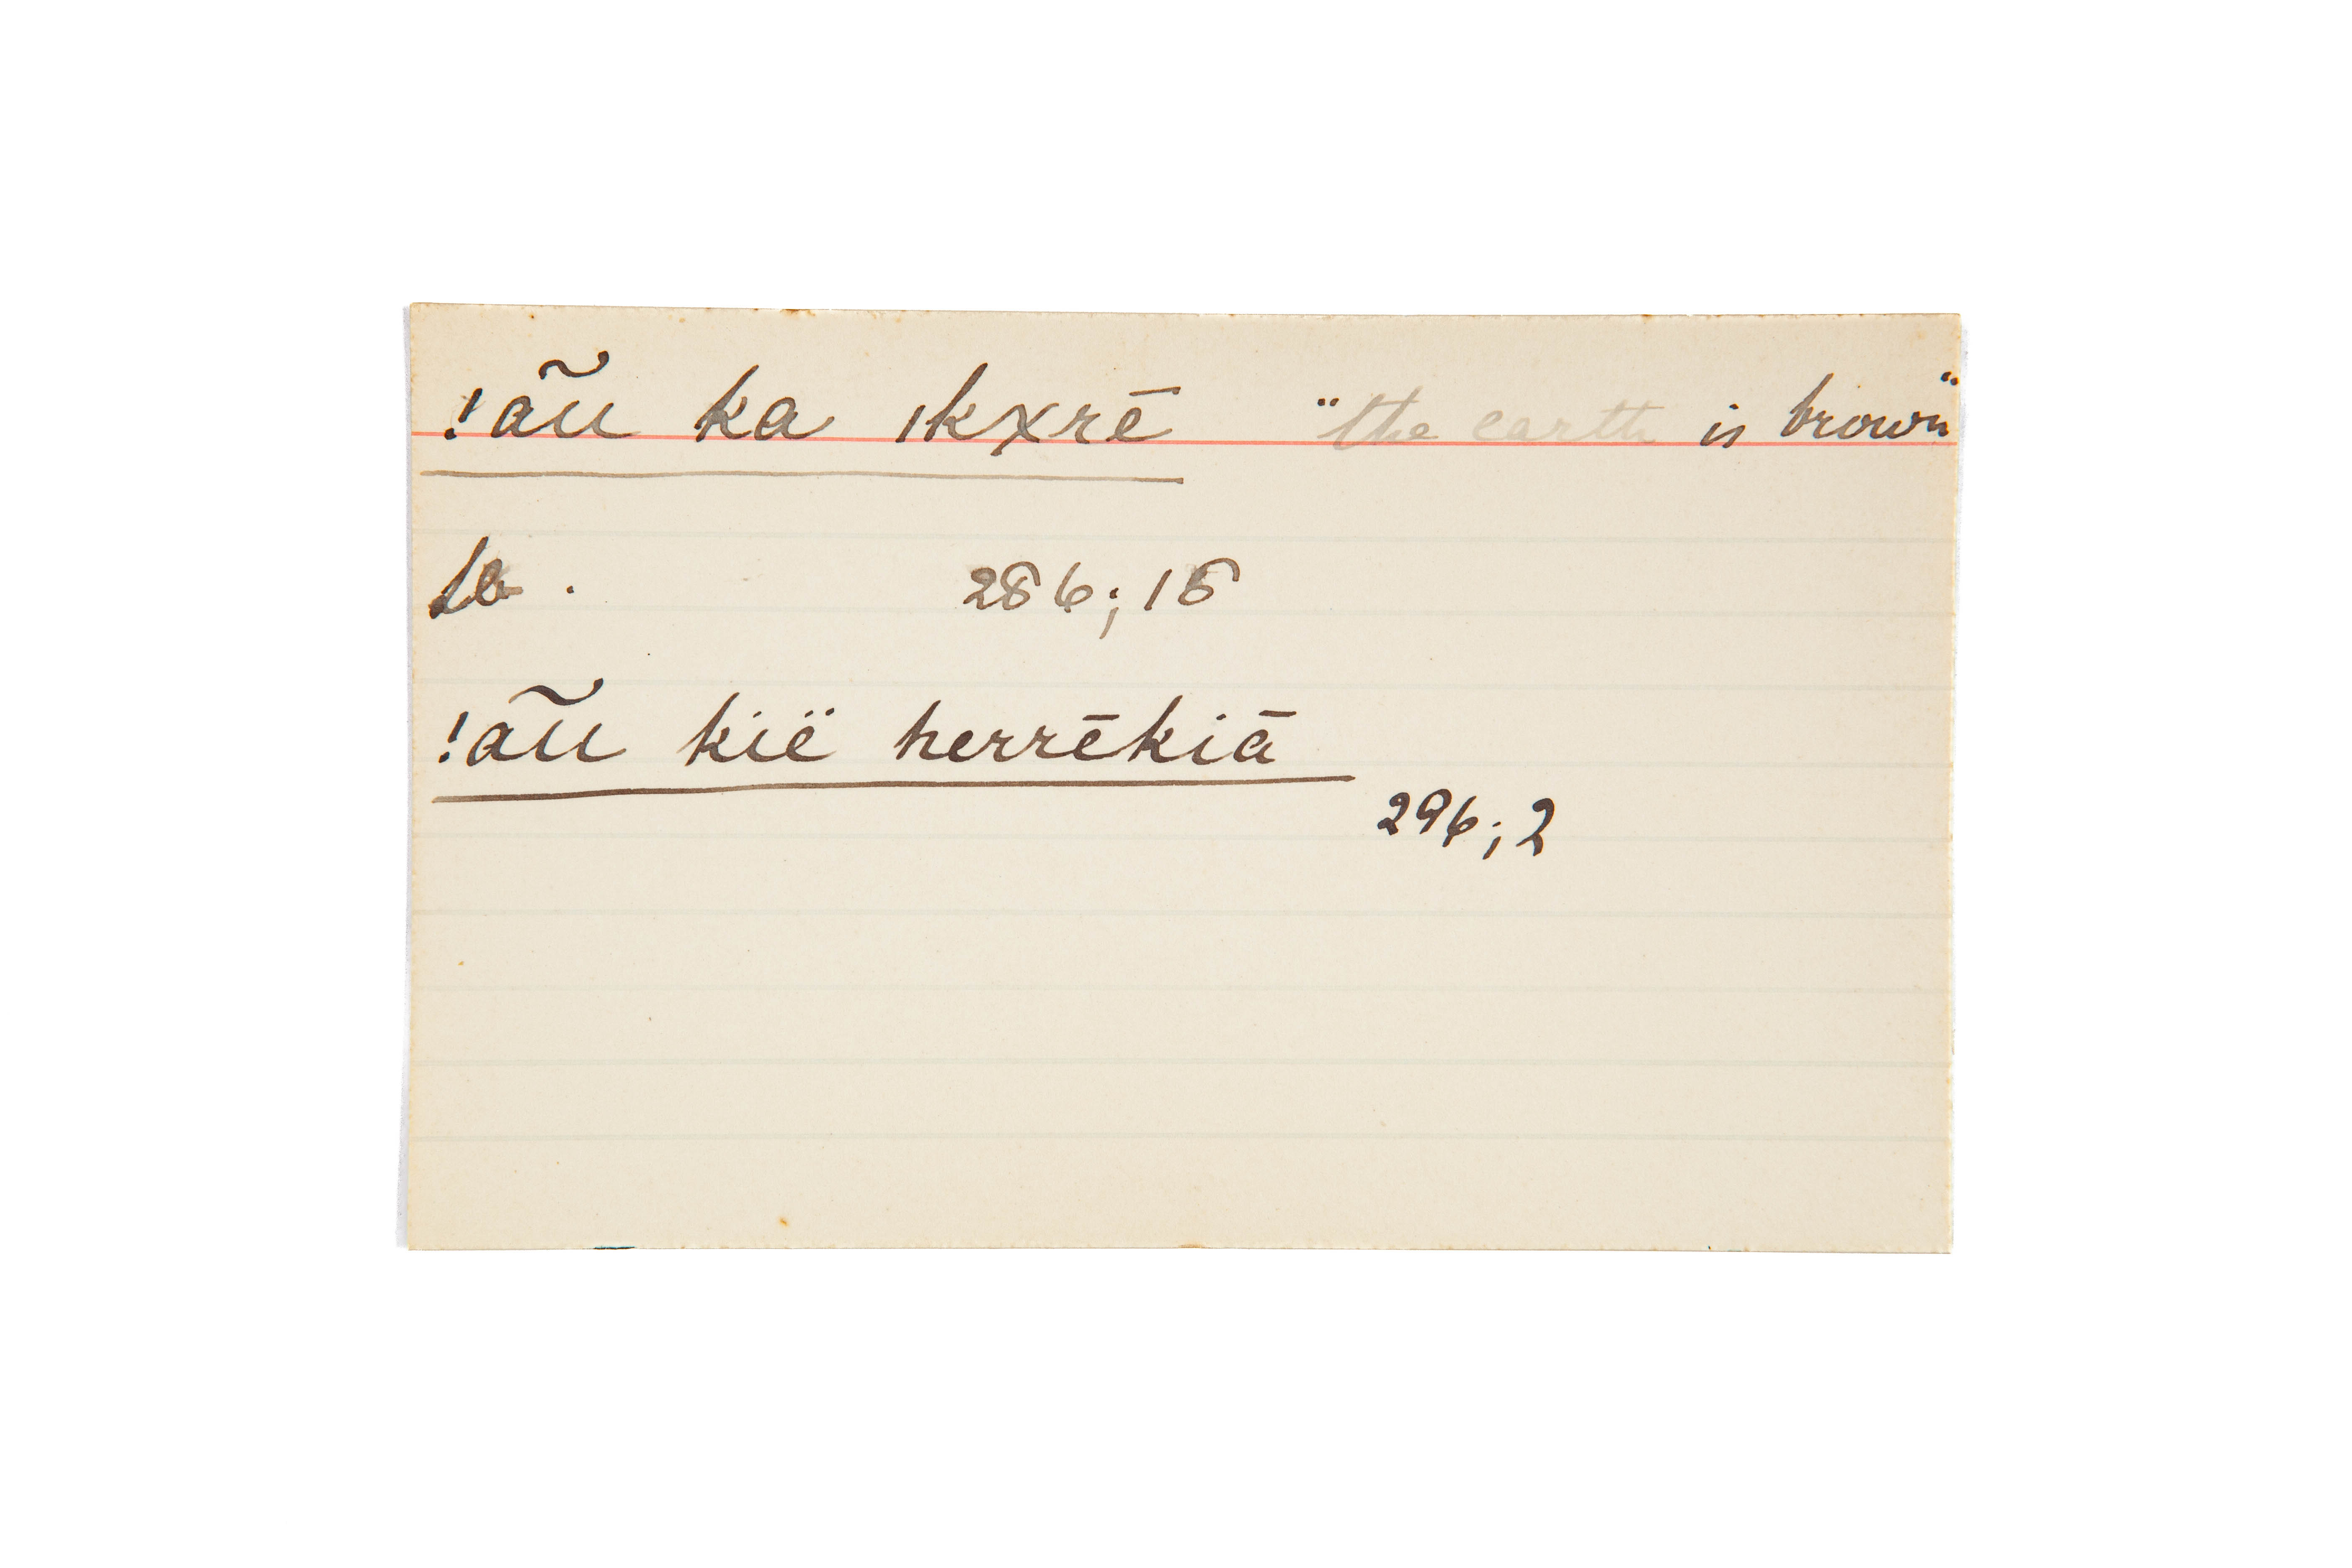 !ãũ ka ıkxrē "the earth is brown"
286; 18
!ãũ kië herrēkiā
296; 2